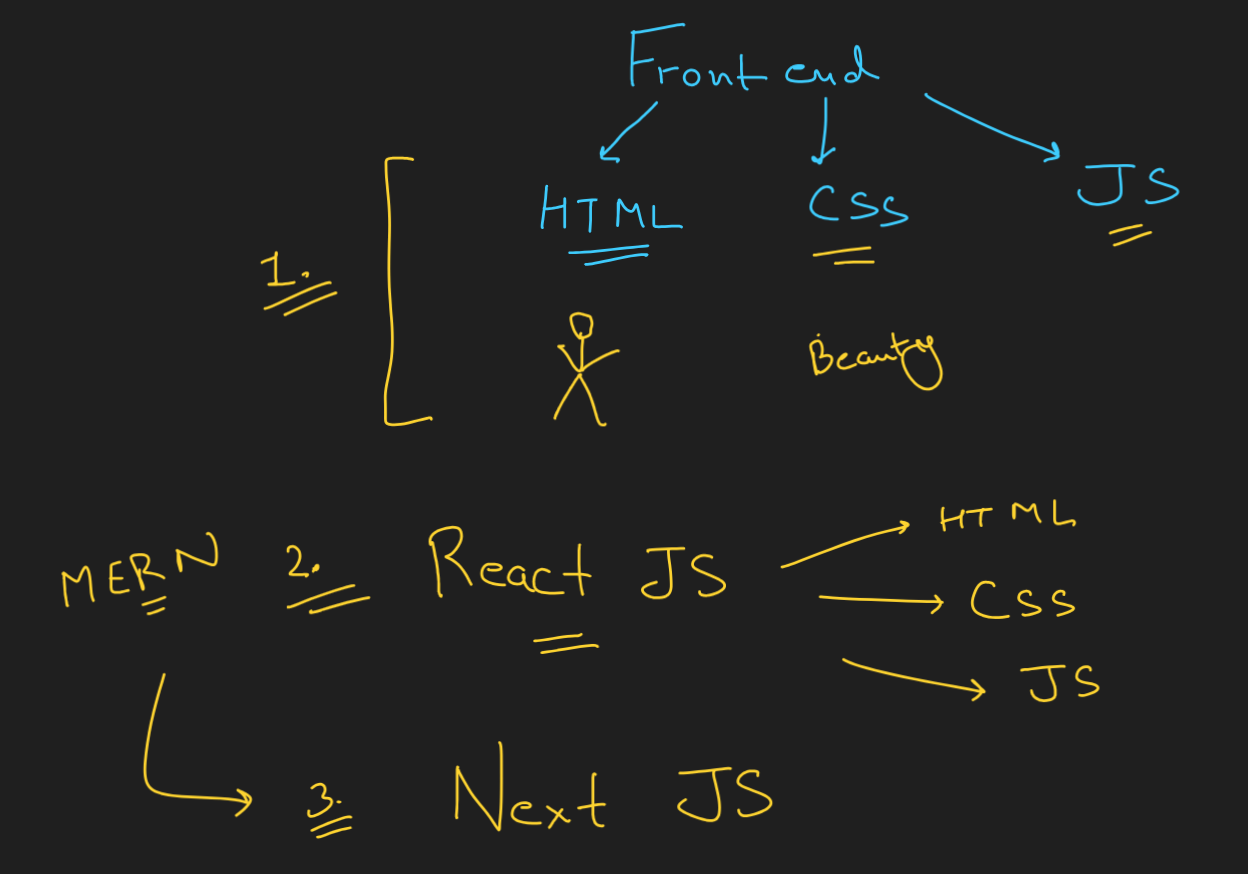 Front end
HTML CSS JS
1.
Beauty
MERN 2. React JS
HTML
CSS
JS
3. Next JS